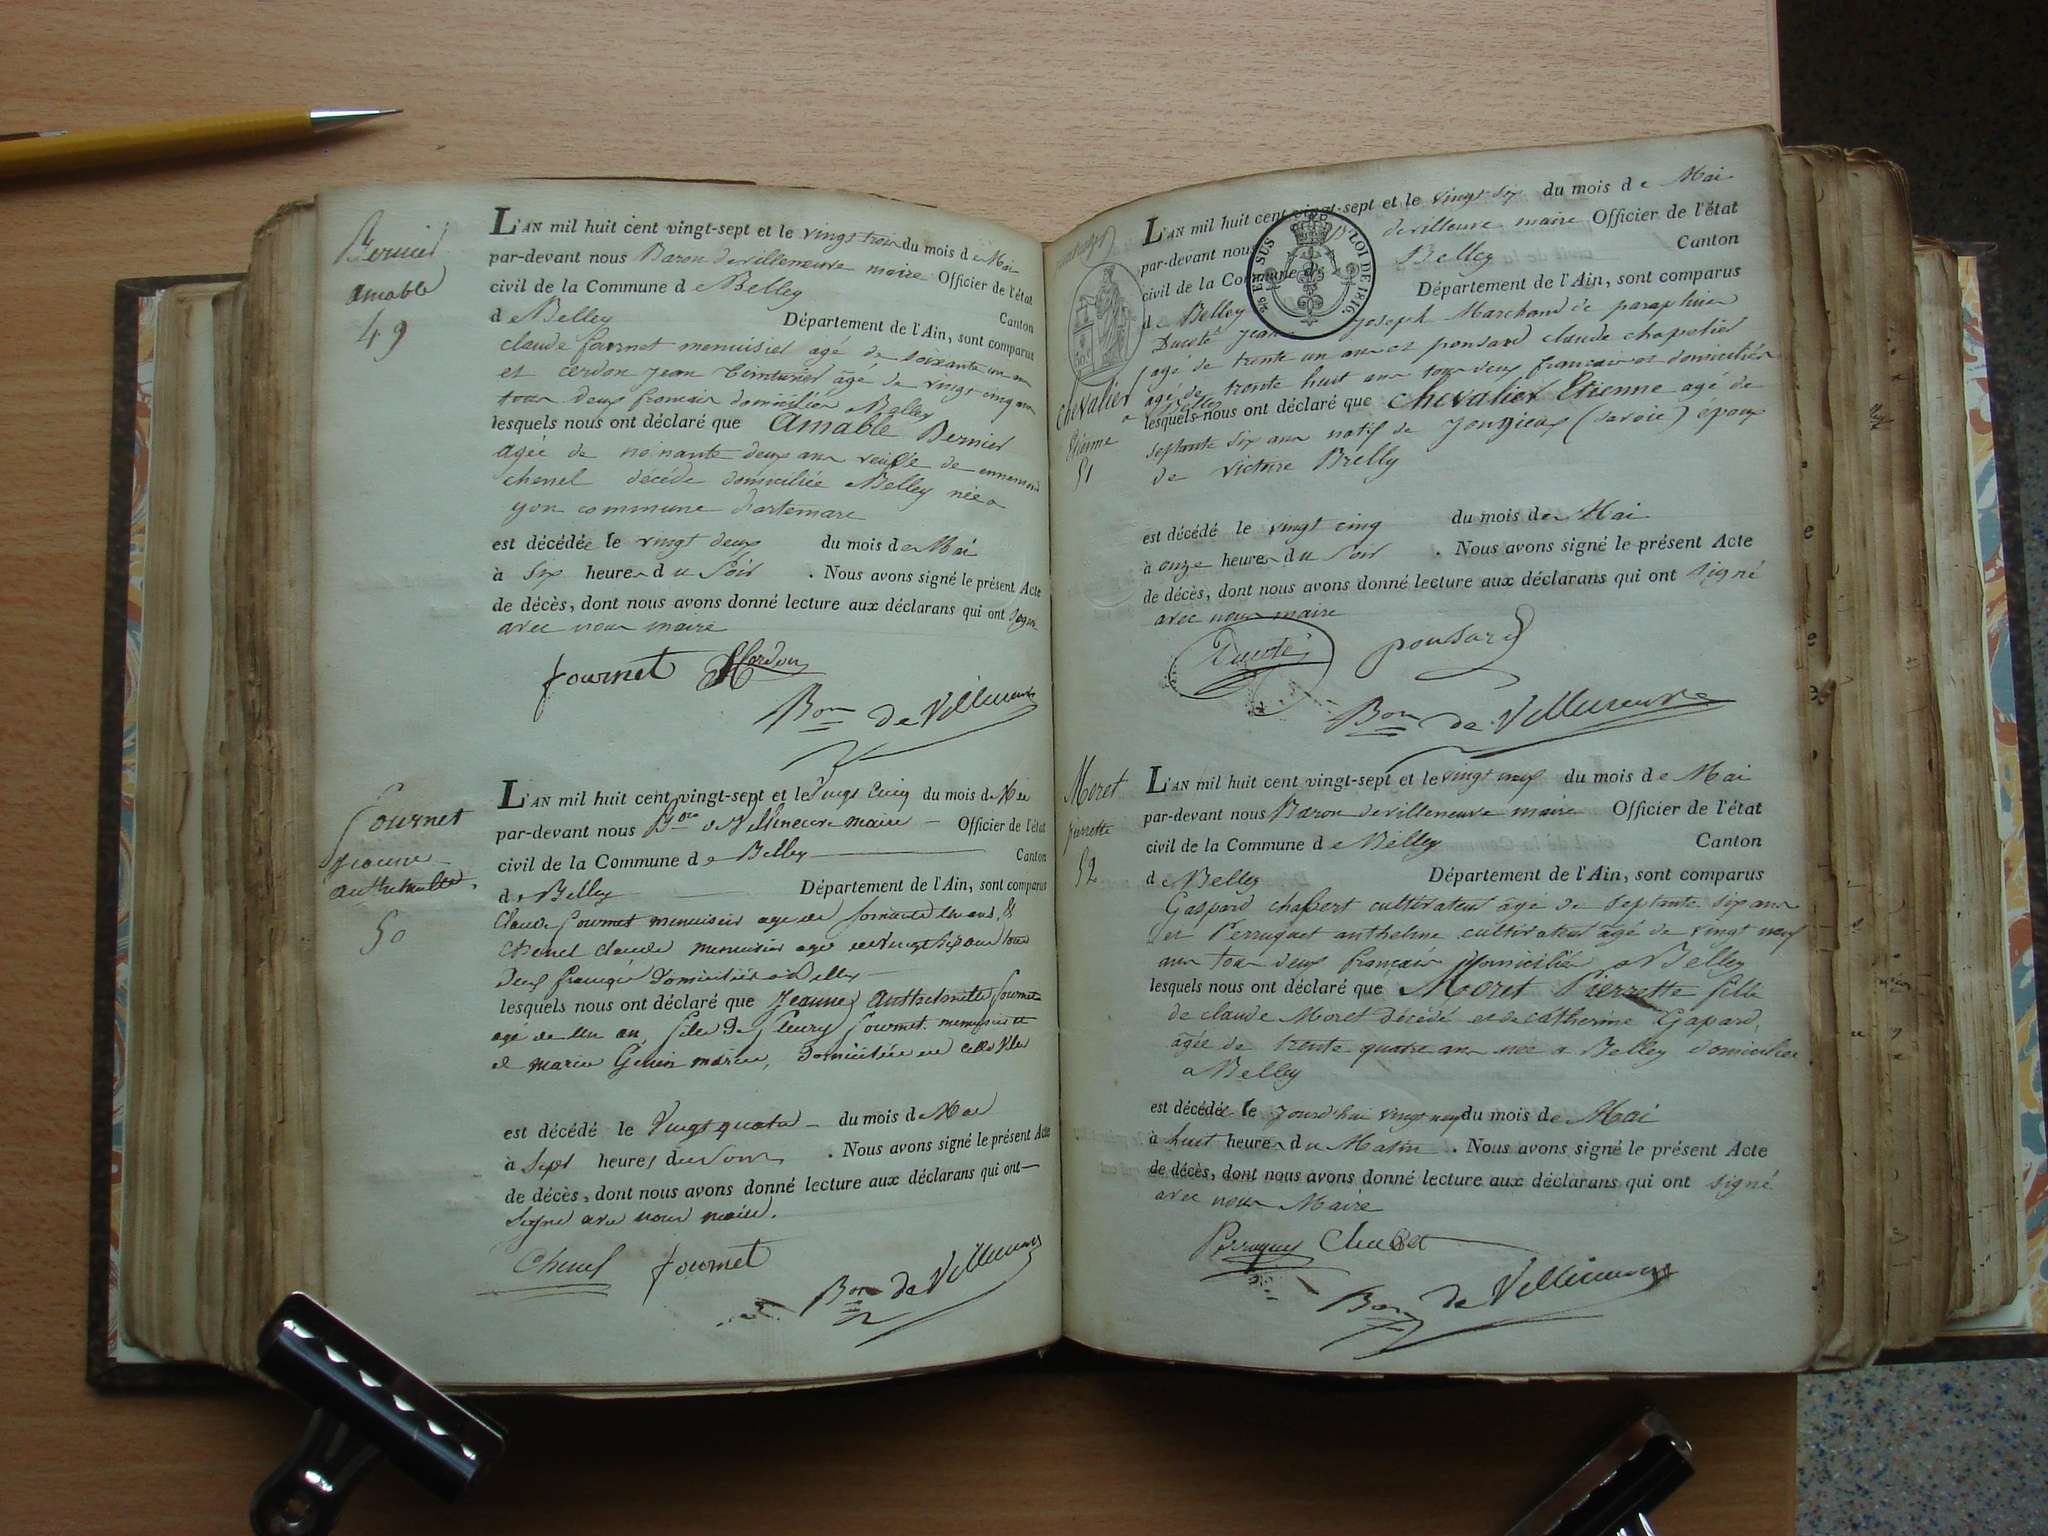 Bernier
amable
49
L'AN mil huit cent vingt-sept et le vingt trois du mois de Mai
par-devant nous Baron devilleneuve maire Officier de l'état
civil de la Commune de Belley Canton
de Belley Département de l'Ain, sont comparus
claude fournet menuisier agé de soixante un an
et cerdon jean teinturier âgé de vingt cinq ans
tous deux français domiciliés a Belley
lesquels nous ont déclaré que Amable Bernier
agée de nonante deux ans veuve de ennemond
chenel décédé domiciliée a Belley née a
yon commune d'artemare
est décédée le vingt deux du mois de Mai
à six heures du Soir . Nous avons signé le présent Acte
de décès, dont nous avons donné lecture aux déclarans qui ont signé
avec nous maire
fournet Cerdon
Bon de Villeneuve
fournet
jeanne
anthelmette
50
L'AN mil huit cent vingt-sept et le vingt cinq du mois de Mai
par-devant nous Bon de Villeneuve maire Officier de l'état
civil de la Commune de Belley Canton
de Belley Département de l'Ain, sont comparus
Claude fournet menuisier age de soixante un ans, &
Chenel claude menuisier age de vingt six ans tous
Deux français Domiciliés a Belley
lesquels nous ont déclaré que Jeanne anthelmette fournet
agé de un an, fille de fleury fournet menuisier
et marie mariés, Domiciliée en cette Ville
est décédé le Vingt quatre du mois de Mai
à Sept heures du Soir . Nous avons signé le présent Acte
de décès, dont nous avons donné lecture aux déclarans qui ont
Signé avec nous maire.
Chenel fournet
Bon de Villeneuve
chevalier
Etienne
51
L'AN mil huit cent vingt-sept et le vingt six du mois de Mai
par-devant nous Bon devilleneuve maire Officier de l'état
civil de la Commune de Belley Canton
de Belley Département de l'Ain, sont comparus
25 EN SUS
LOI DE 1816.
Ducoté jean joseph Marchand de parapluies
agé de trente un ans et ponsard claude chapelier
agé de trente huit ans tous deux français et domiciliés
a Belley
lesquels nous ont déclaré que chevalier Etienne agé de
septante six ans natif de Jongieux (savoie) époux
de victoire Brelly
est décédé le vingt cinq du mois de Mai
à onze heures du Soir . Nous avons signé le présent Acte
de décès, dont nous avons donné lecture aux déclarans qui ont signé
avec nous maire
Ducoté ponsard
Bon de Villeneuve
Moret
pierrette
52
L'AN mil huit cent vingt-sept et le vingt neuf du mois de Mai
par-devant nous Baron devilleneuve maire Officier de l'état
civil de la Commune de Belley Canton
de Belley Département de l'Ain, sont comparus
Gaspard chabert cultivateur agé de septante six ans
et Perruquet anthelme cultivateur âgé de vingt neuf
ans tous deux français domiciliés a Belley
lesquels nous ont déclaré que Moret Pierrette fille
de claude Moret décédé et de catherine Gapard,
âgée de trente quatre ans née a Belley domiciliée
a Belley
est décédée le jourd'hui vingt neuf du mois de Mai
à huit heures du Matin . Nous avons signé le présent Acte
de décès, dont nous avons donné lecture aux déclarans qui ont signé
avec nous Maire
Perruquet Chabert
Bon de Villeneuve